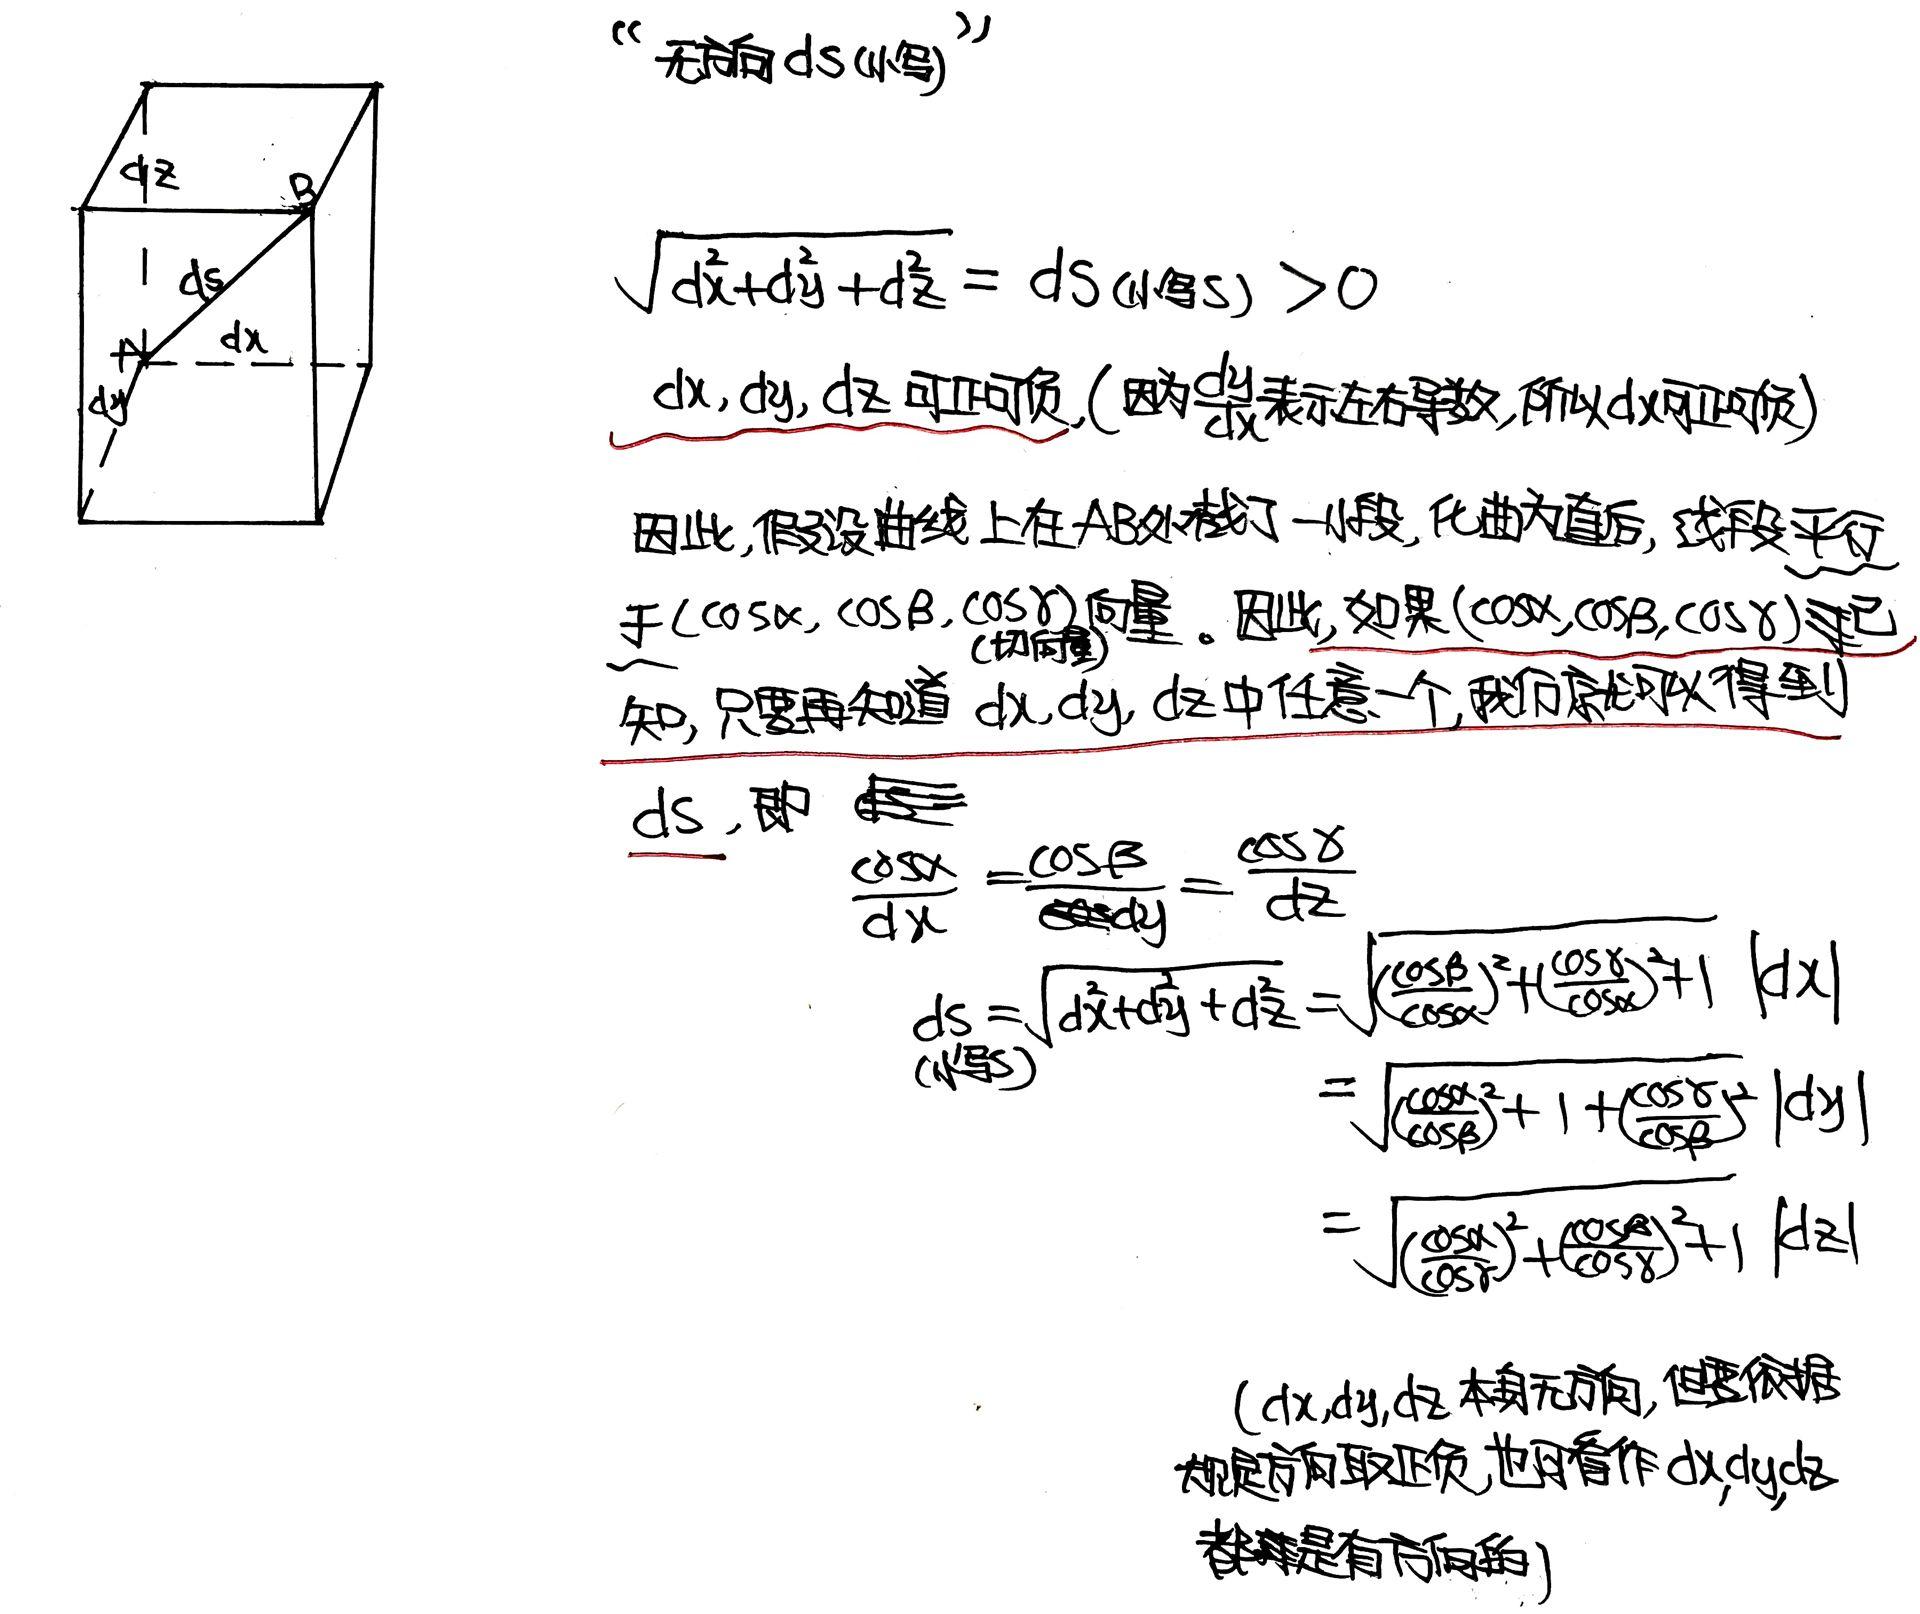 “无方向ds(小写)”
dz
B
ds
A
dx
dy
√(dx²+dy²+dz²) = ds(小写s) >0
dx, dy, dz 可正可负,(因为dy/dx表示左右导数,所以dx可正可负)
因此,假设曲线上在AB处截了一小段,化曲为直后,线段平行
于(cosα, cosβ, cosγ)向量。因此,如果(cosα,cosβ,cosγ)是已
(切向量)
知,只要再知道 dx,dy,dz中任意一个,我们就可以得到
ds,即
cosα/dx = cosβ/dy = cosγ/dz
ds=√(dx²+dy²+dz²) = √((cosβ/cosα)²+(cosγ/cosα)²+1) |dx|
(小写s)
= √((cosα/cosβ)²+1+(cosγ/cosβ)²) |dy|
= √((cosα/cosγ)²+(cosβ/cosγ)²+1) |dz|
(dx,dy,dz本身无方向,但要依据
规定方向取正负,也可看作dx,dy,dz
都是有方向的)